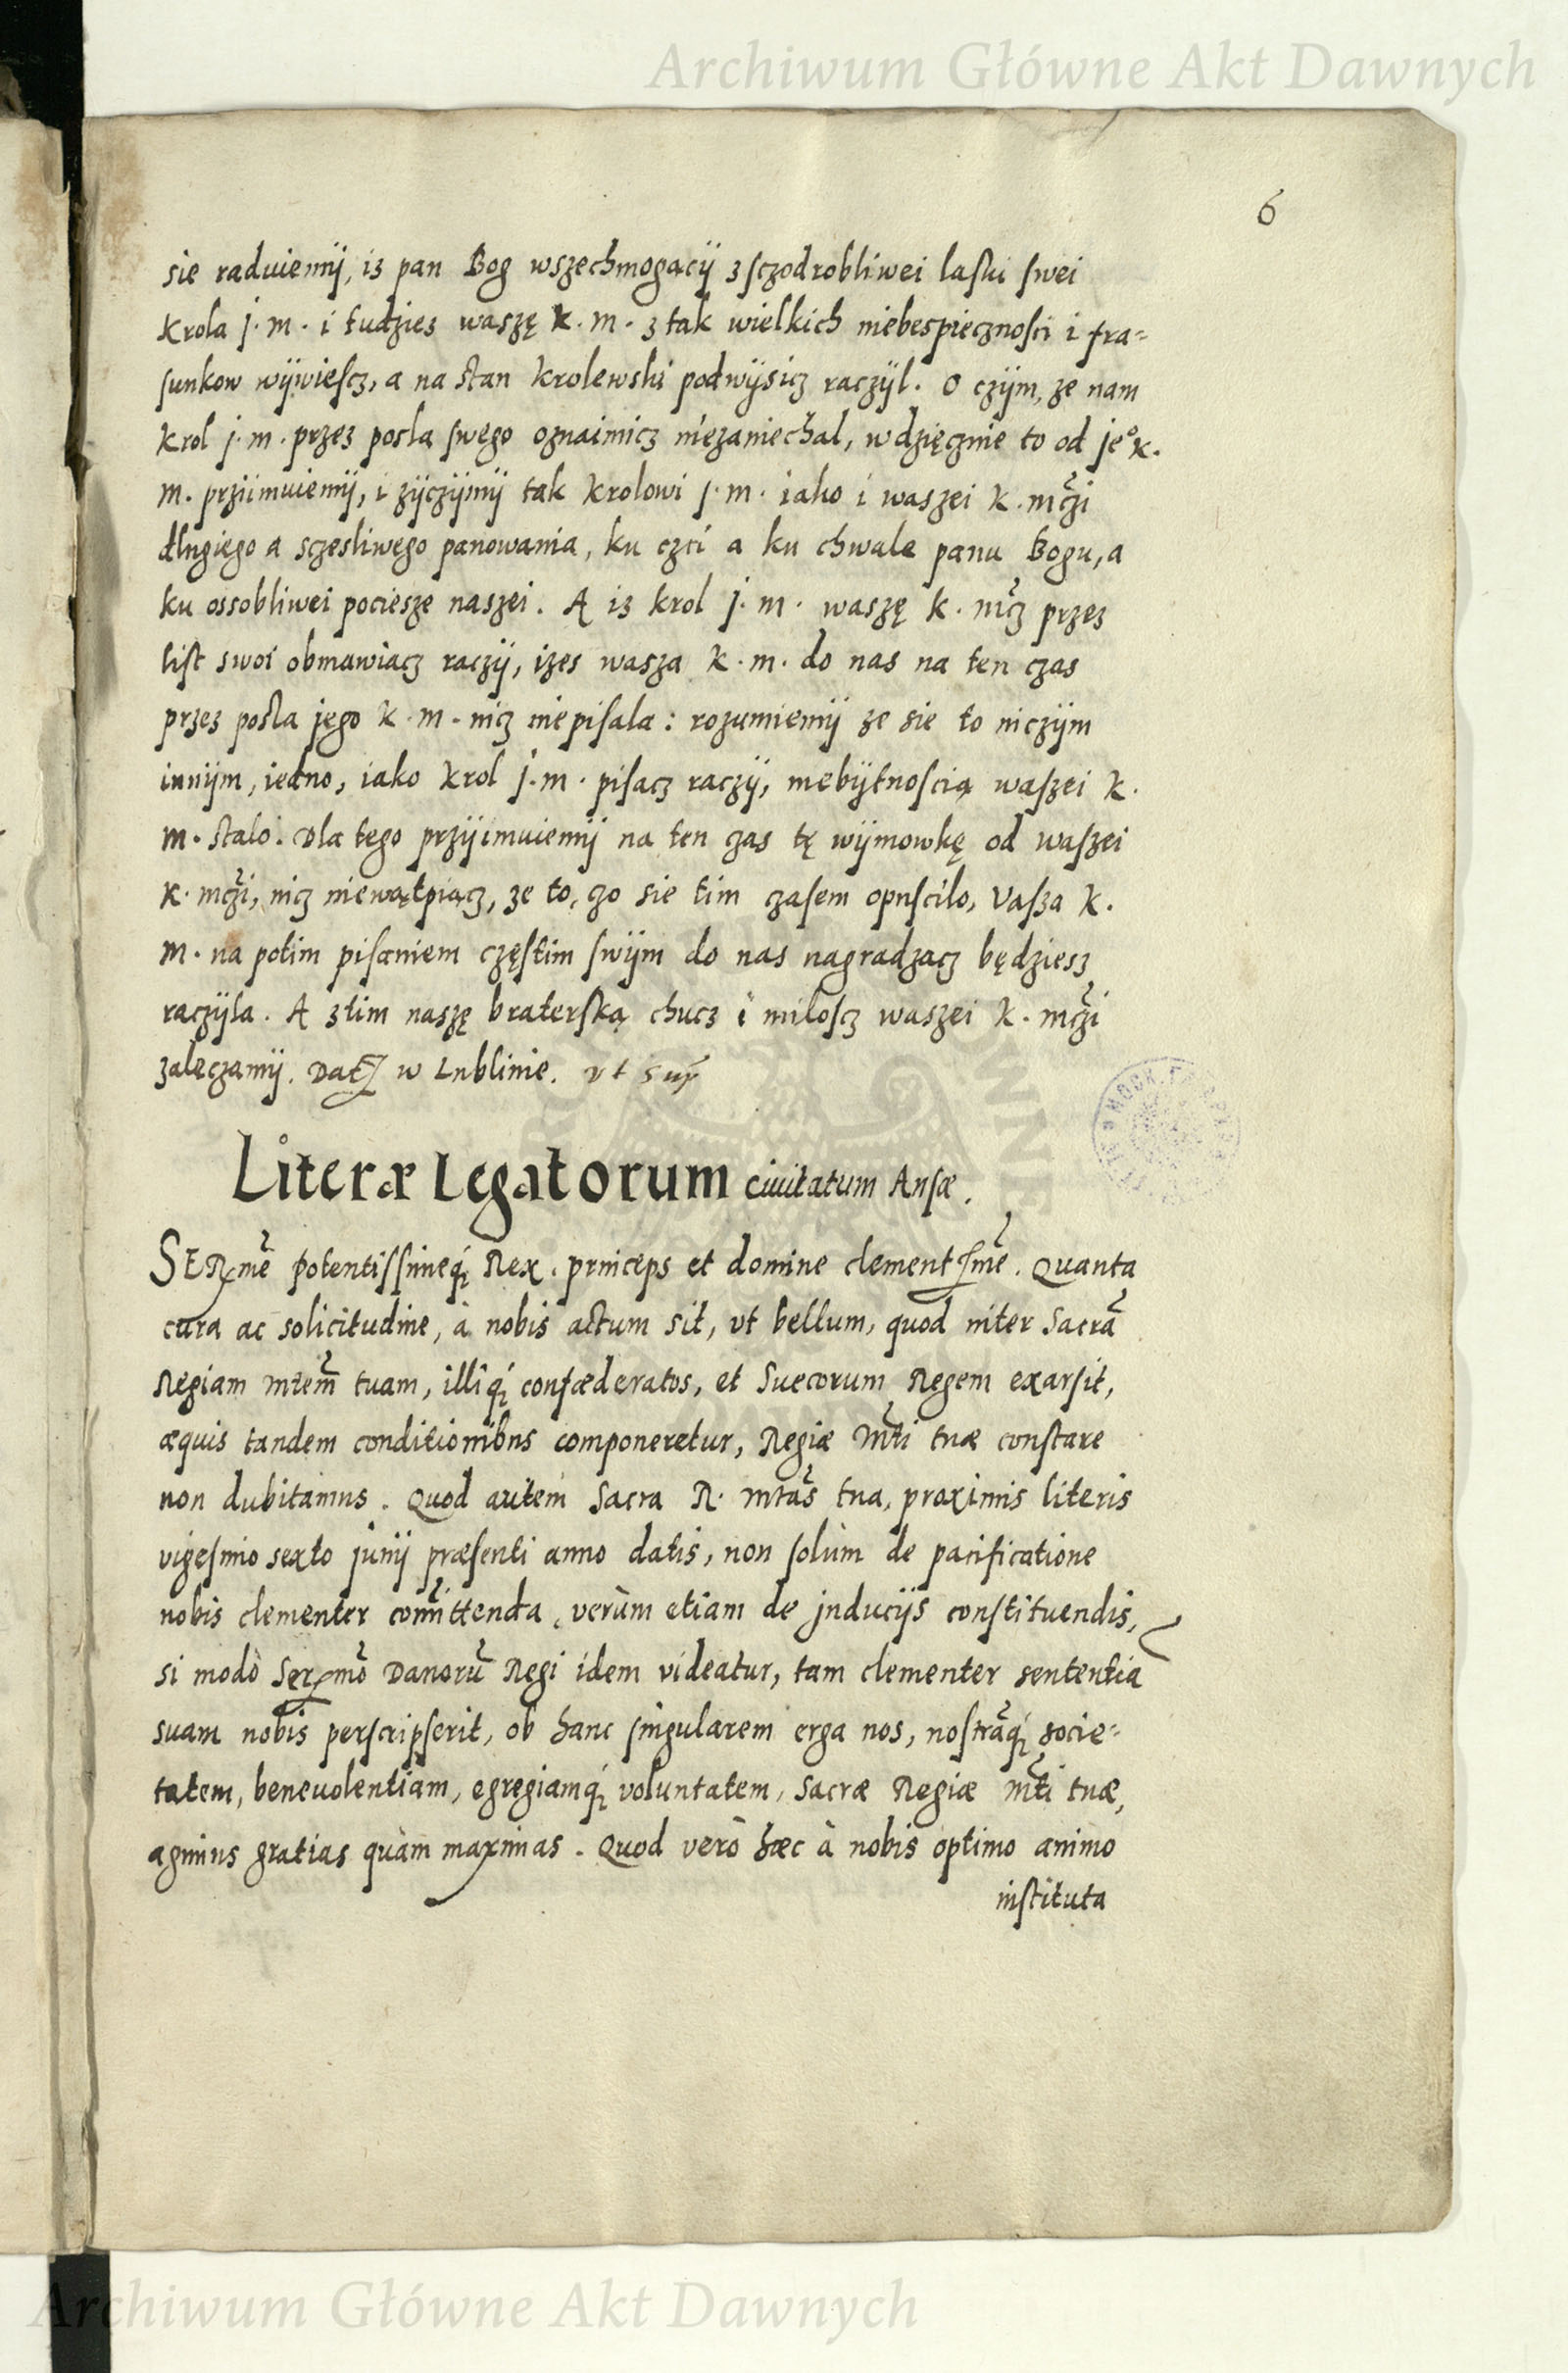 Archiwum Główne Akt Dawnych
6
sie raduiemÿ, iz pan Bog wszechmogącÿ z sczodrobliwei laski swei
Krola j. m. i tudziez waszę K. m. z tak wielkich niebespiecznosci i fra=
sunkow wÿwiescz, a na stan krolewski podwÿsicz raczÿl. O czÿm, ze nam
Krol j. m. przez posla swego oznaimicz niezaniechal, wdzięcznie to od jeº K.
m. prziimuiemÿ, i zÿczÿmÿ tak Krolowi j. m. iako i waszei K. mczi
dlugiego a sczesliwego panowania, ku czci a ku chwale panu Bogu, a
ku ossobliwei pociesze naszei. A iz krol j. m. waszę K. mcz przez
list swoi obmawiacz raczÿ, izes wasza K. m. do nas na ten czas
przez posla jego K. m. nicz niepisala: rozumiemÿ ze sie to niczÿm
innÿm, iedno, iako Krol j. m. pisacz raczÿ, niebÿtnoscią waszei K.
m. stalo. Dla tego przÿimuiemÿ na ten czas tę wÿmowkę od waszei
K. mczi, nicz niewątpiącz, ze to, czo sie tim czasem opuscilo, Vasza K.
m. na potim pisaniem częstim swÿm do nas nagradzacz będziesz
raczÿla. A z tim naszę braterską chucz i miloscz waszei K. mczi
zaleczamÿ. Dat w Lublinie. vt sup
Literæ Legatorum Ciuitatum Ansæ.
SERme potentissimeq; Rex, princeps et domine clementssme. Quanta
cura ac solicitudine, à nobis actum sit, vt bellum, quod inter Sacrā
Regiam Mtem tuam, illiq; confæderatos, et Suecorum Regem exarsit,
æquis tandem conditionibus componeretur, Regiæ Mti tuæ constare
non dubitamus. Quod autem Sacra R. Mtas tua, proximis literis
vigesimo sexto junij præsenti anno datis, non solùm de pacificatione
nobis clementer comittenda, verùm etiam de jnducijs constituendis,
si modò Sermo Danorū Regi idem videatur, tam clementer sententiā
suam nobis perscripserit, ob hanc singularem erga nos, nostrāq; socie=
tatem, beneuolentiam, egregiamq; voluntatem, Sacræ Regiæ Mti tuæ,
agimus gratias quàm maximas. Quod verò hæc à nobis optimo animo
instituta
Archiwum Główne Akt Dawnych